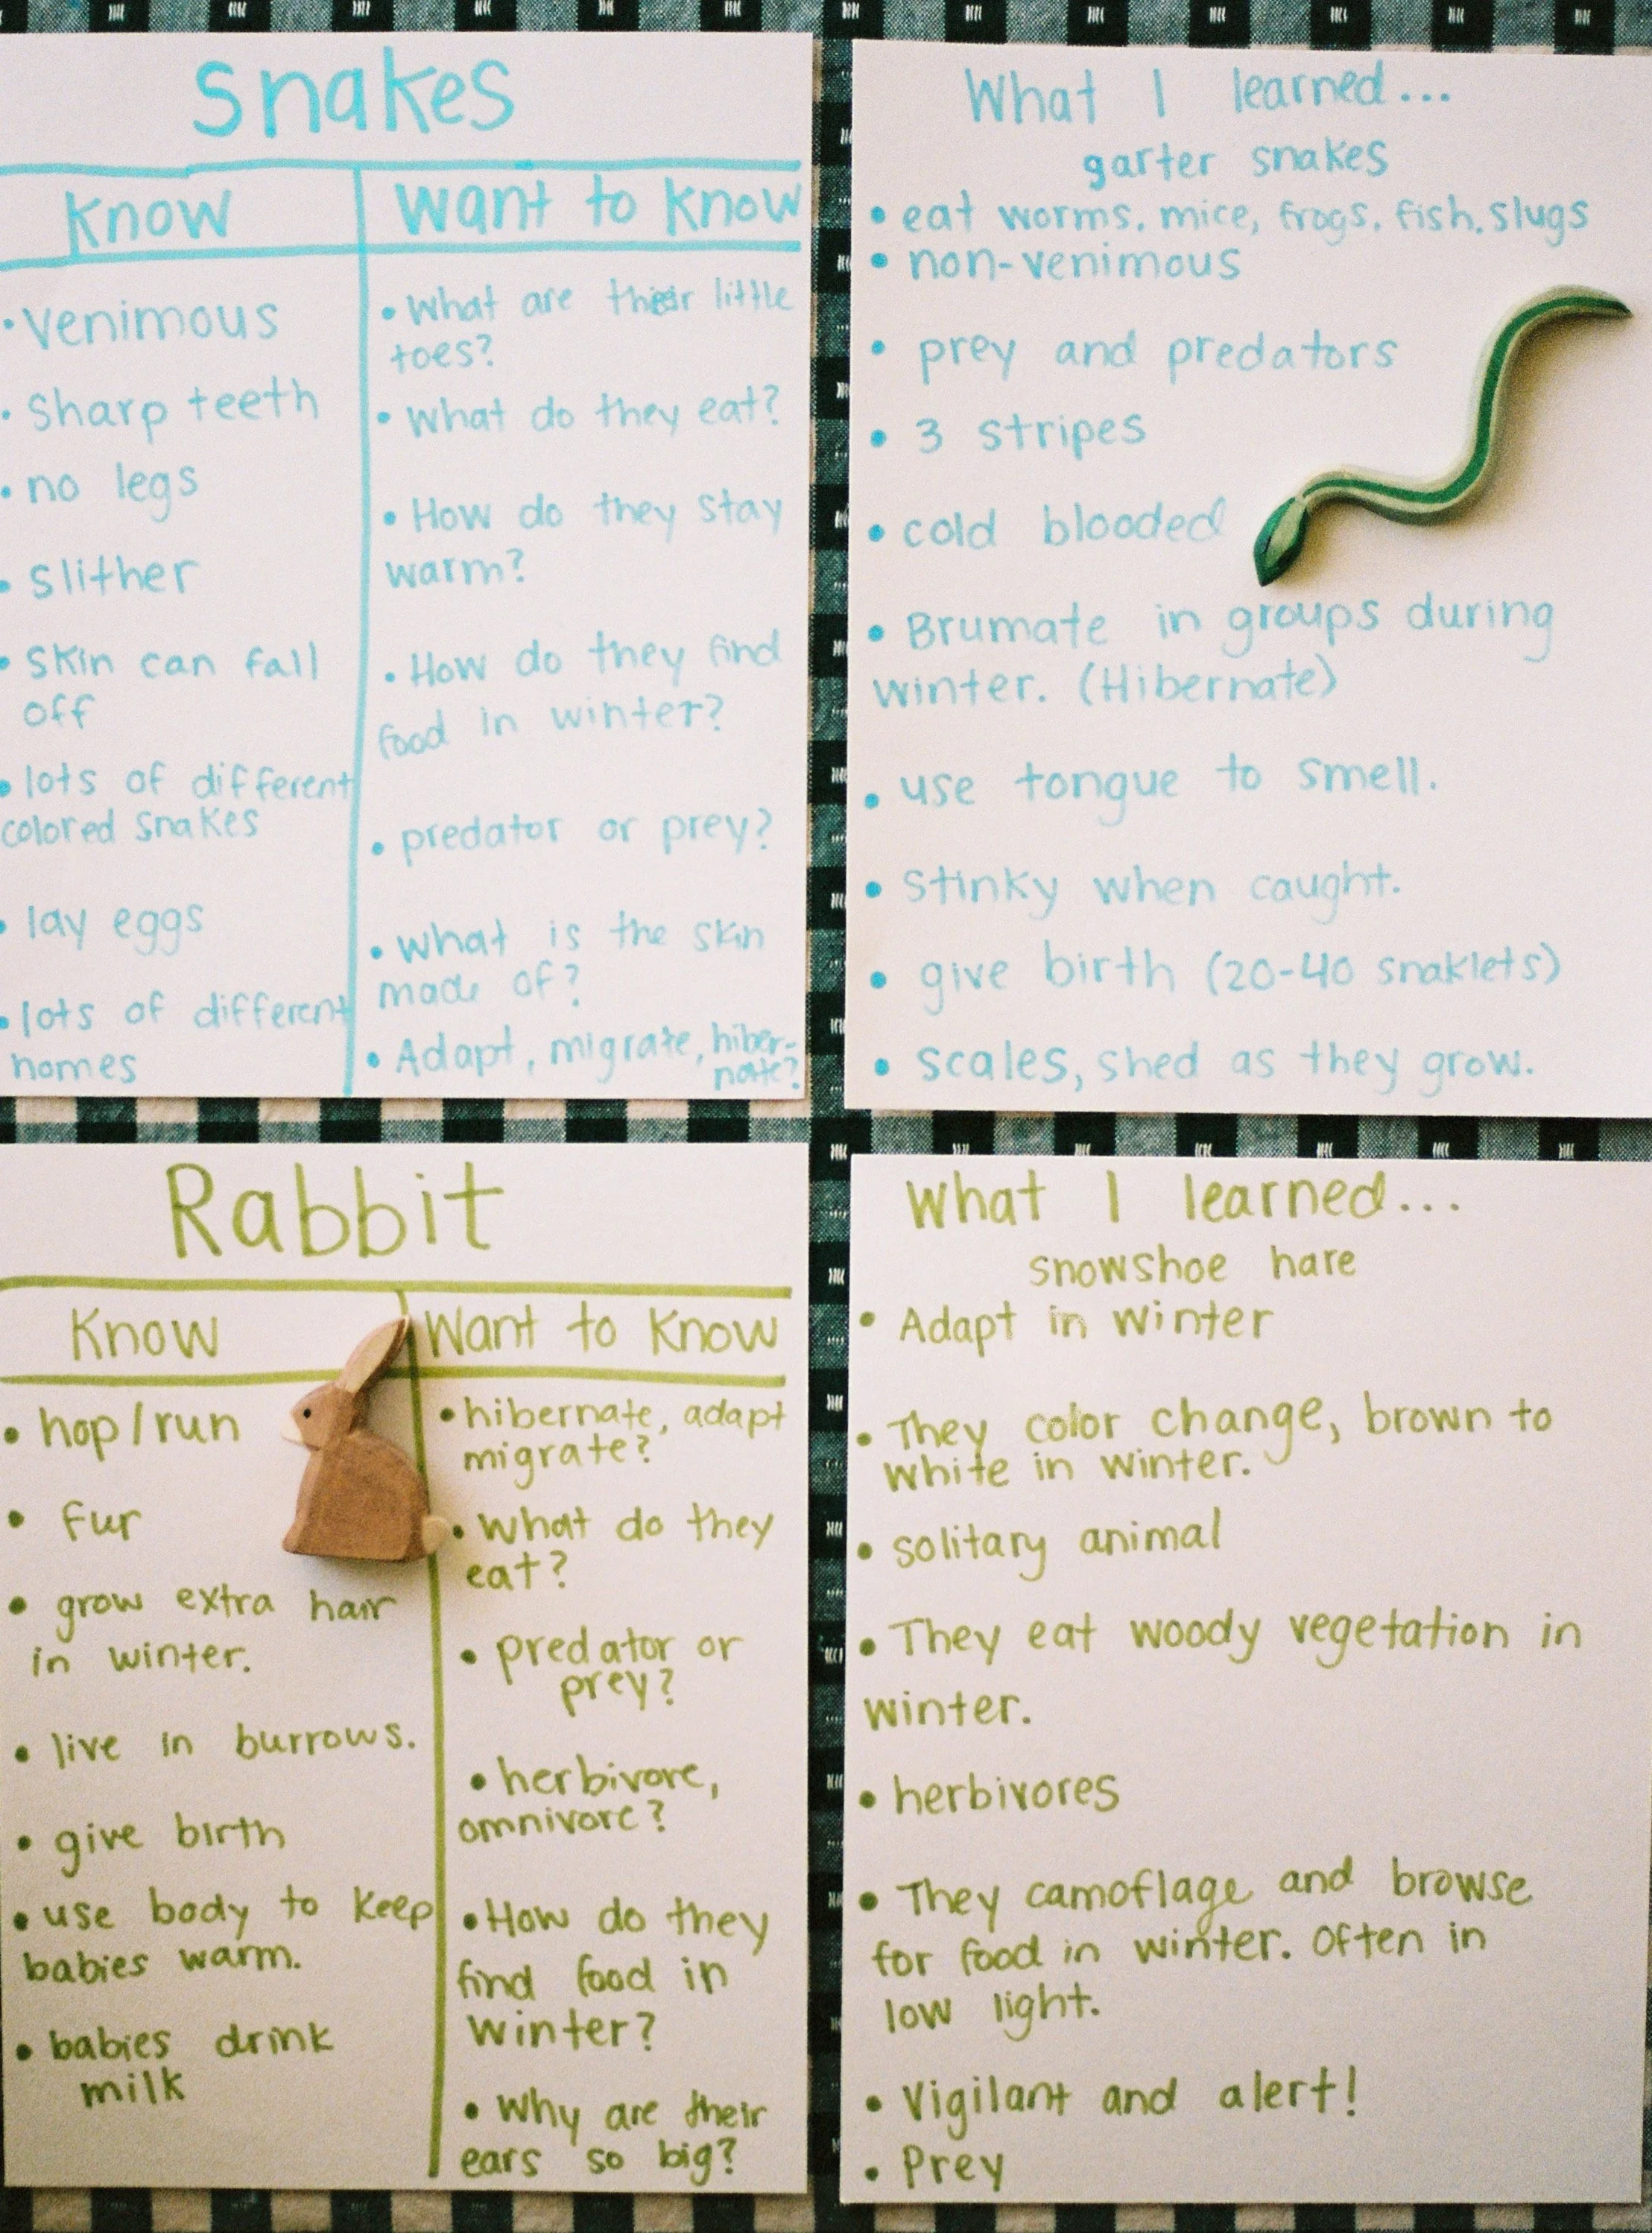 Snakes
Know
Want to know
• Venimous
• Sharp teeth
• no legs
• slither
• skin can fall
off
• lots of different
colored snakes
• lay eggs
• lots of different
homes
• What are their little
toes?
• What do they eat?
• How do they stay
warm?
• How do they find
food in winter?
• predator or prey?
• what is the skin
made of?
• Adapt, migrate, hiber-
nate?
What I learned...
garter snakes
• eat worms, mice, frogs, fish, slugs
• non-venimous
• prey and predators
• 3 stripes
• cold blooded
• Brumate in groups during
winter. (Hibernate)
• use tongue to smell.
• stinky when caught.
• give birth (20-40 snaklets)
• scales, shed as they grow.
Rabbit
Know
Want to know
• hop/run
• fur
• grow extra hair
in winter.
• live in burrows.
• give birth
• use body to keep
babies warm.
• babies drink
milk
• hibernate, adapt
migrate?
• What do they
eat?
• predator or
prey?
• herbivore,
omnivore?
• How do they
find food in
winter?
• Why are their
ears so big?
What I learned...
snowshoe hare
• Adapt in winter
• They color change, brown to
white in winter.
• solitary animal
• They eat woody vegetation in
winter.
• herbivores
• They camoflage and browse
for food in winter. Often in
low light.
• Vigilant and alert!
• Prey